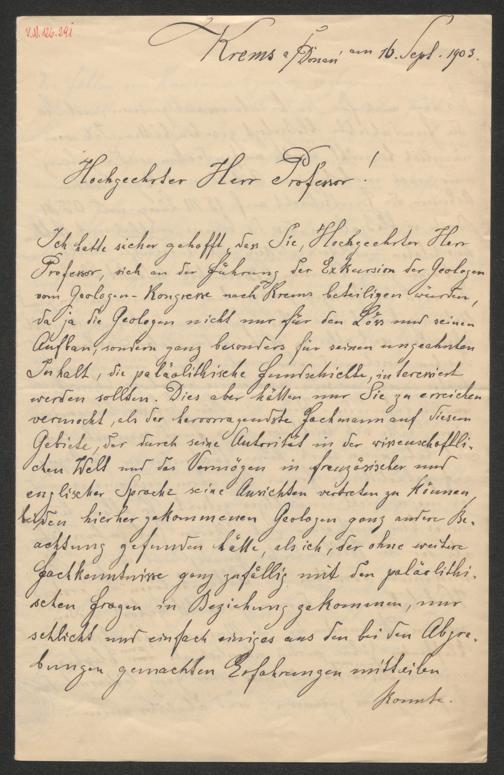 V.N. 126.291
Krems a/Donau am 16. Sept. 1903.
Hochgeehrter Herr Professor!
Ich hatte sicher gehofft, dass Sie, Hochgeehrter Herr
Professor, sich an der Führung der Exkursion der Geologen
vom Geologen-Kongresse nach Krems beteiligen würden,
da ja die Geologen nicht nur für den Löss und seinen
Aufbau, sondern ganz besonders für seinen ungeahnten
Inhalt, die paläolithische Fundschichte, interessiert
werden sollten. Dies aber hätten nur Sie zu erreichen
vermocht, als der hervorragendste Fachmann auf diesem
Gebiete, der durch seine Autorität in der wissenschaftli-
chen Welt und das Vermögen in französischer und
englischer Sprache seine Ansichten vertreten zu können,
bei den hierher gekommenen Geologen ganz andere Be-
achtung gefunden hätte, als ich, der ohne weitere
Fachkenntnisse ganz zufällig mit den paläolithi-
schen Fragen in Beziehung gekommen, nur
schlicht und einfach einiges aus den bei den Abgra-
bungen gemachten Erfahrungen mitteilen
konnte.